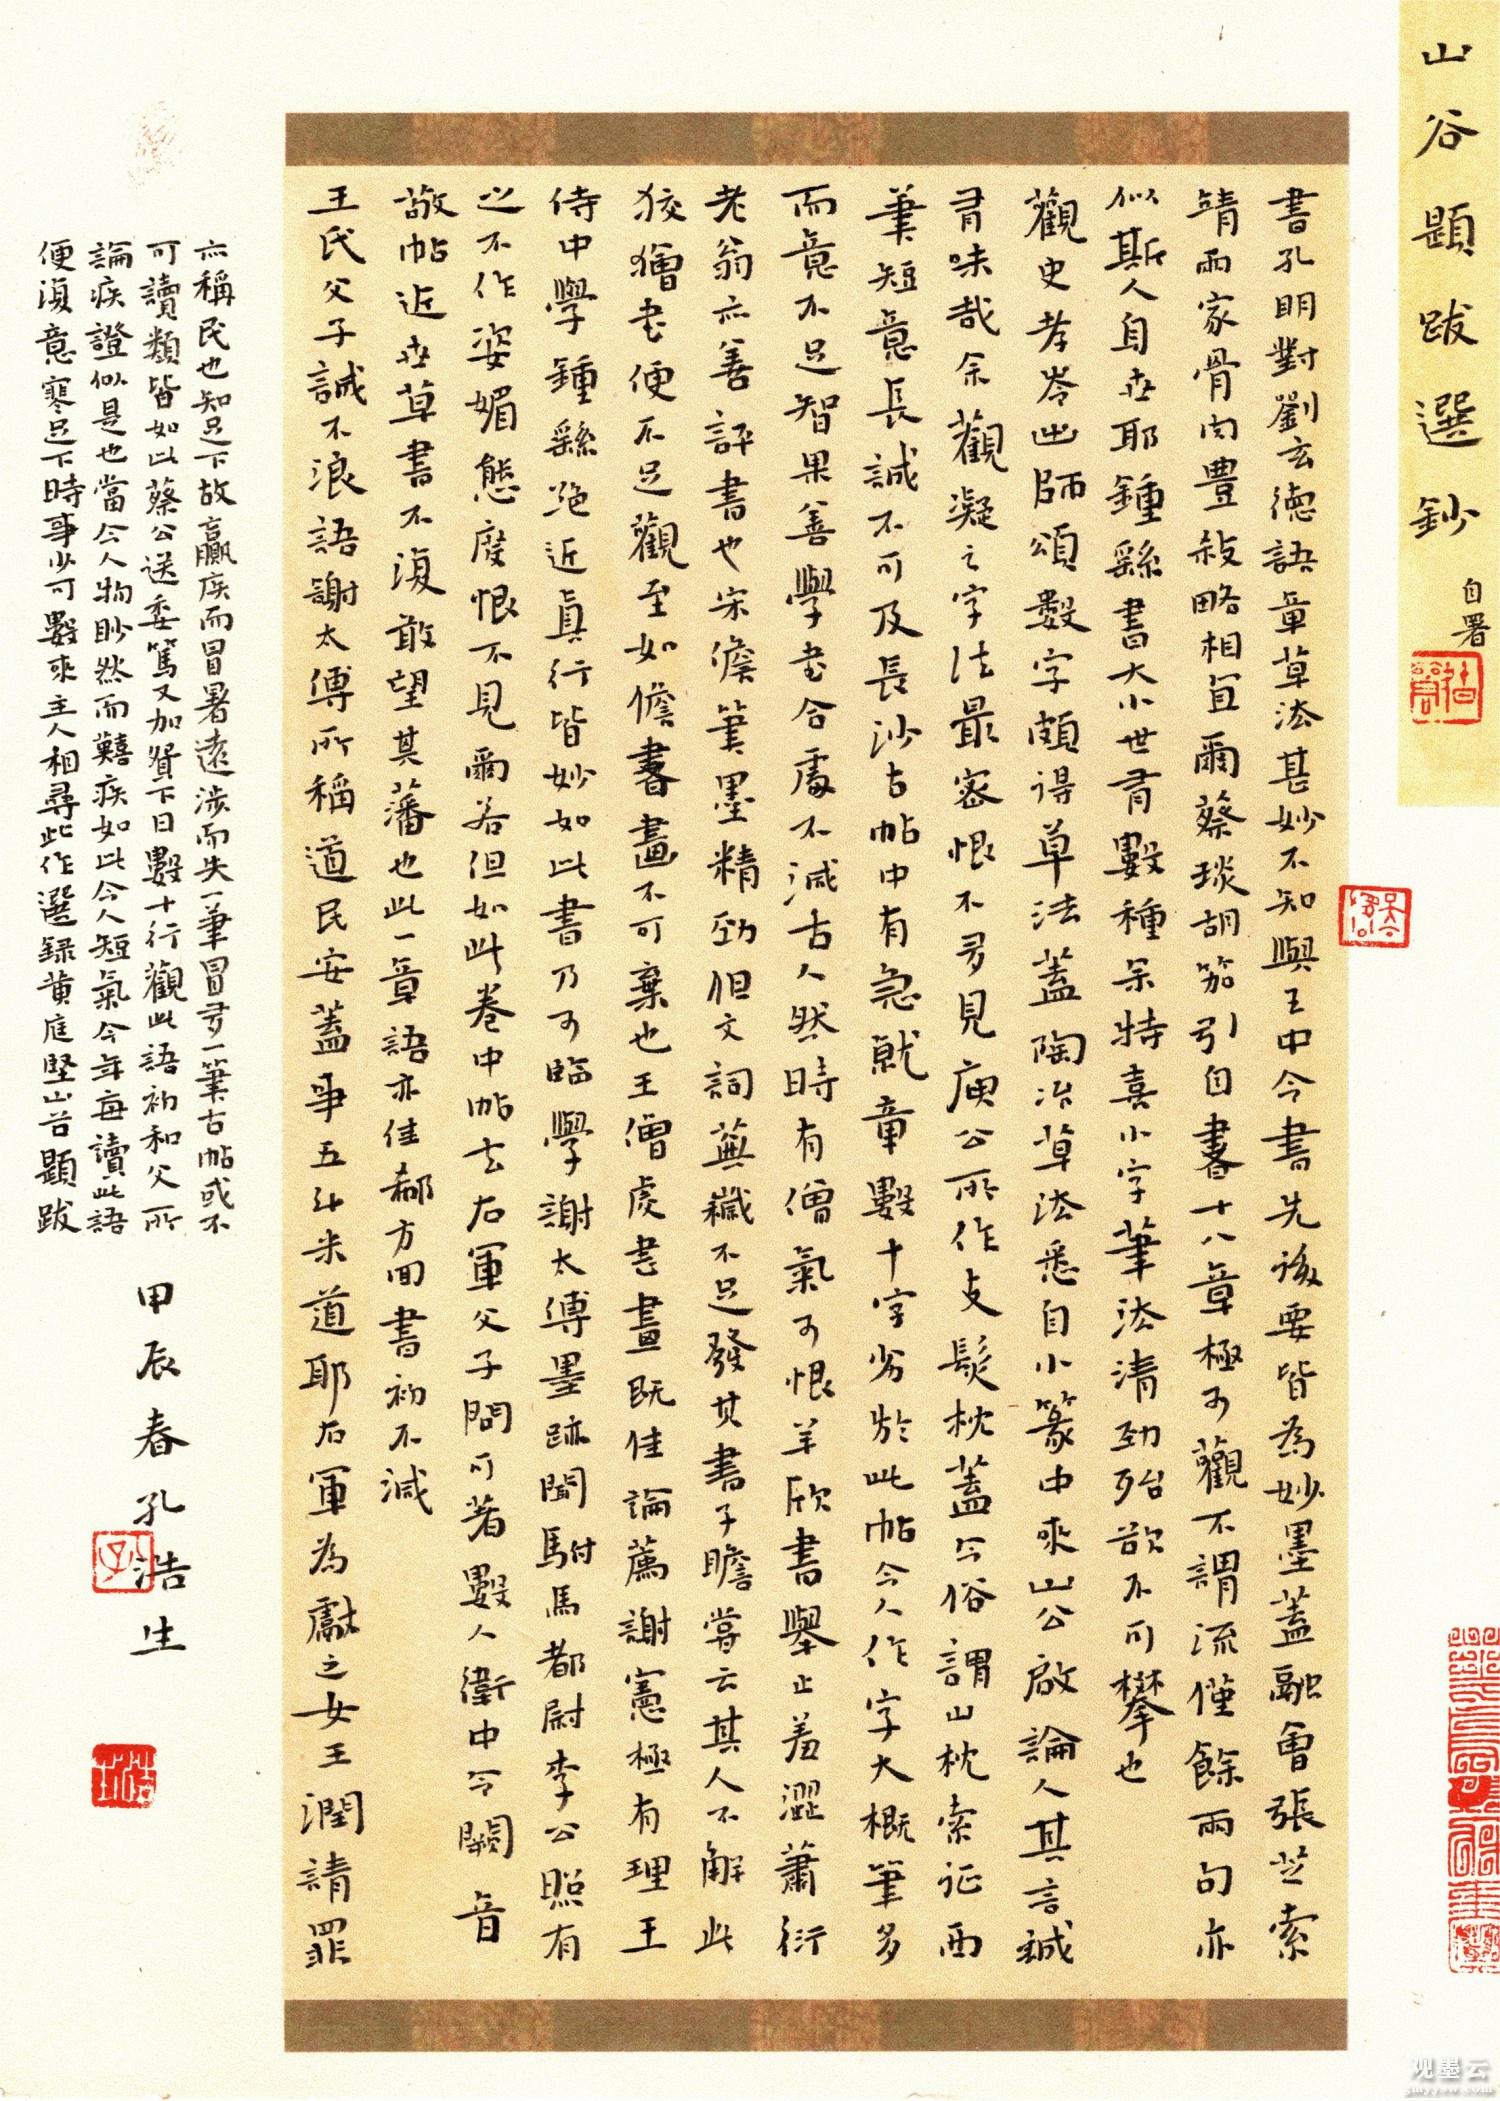 山谷題跋選鈔
自署
書孔明對劉玄德語章草法甚妙不知與王中令書先後要皆為妙墨蓋融會張芝索
靖兩家骨肉豊殺略相宜爾蔡琰胡笳引自書十八章極可觀不謂流僅餘兩句亦
似斯人身世耶鍾繇書大小世有數種余特喜小字筆法清勁殆欲不可攀也
觀史孝岑出師頌數字頗得草法蓋陶冶草法悉自小篆中來山公啟論人其言誠
有味哉余觀凝之字法最密恨不多見庾公所作支髮枕蓋今俗謂山枕索征西
筆短意長誠不可及長沙古帖中有急就章數十字劣於此帖今人作字大概筆多
而意不足智果善學書合處不減古人然時有僧氣可恨羊欣書舉止羞澀蕭衍
老翁亦善評書也宋儋筆墨精勁但文詞蕪穢不足發其書子瞻嘗云其人不解此
狡獪書便不足觀至如儋書畫不可棄也王僧虔書畫既佳論薦謝憲極有理王
侍中學鍾繇絶近真行皆妙如此書乃可臨學謝太傅墨跡聞駙馬都尉李公照有
之不作姿媚態度恨不見爾若但如此卷中帖去右軍父子間可著數人衛中令闕 音
敬帖近世草書不復敢望其藩也此一章語亦佳郗方回書初不減
王氏父子誠不浪語謝太傅所稱道民安蓋事五斗米道耶右軍為獻之女王潤請罪
亦稱民也知足下故羸疾而冒暑遠涉而失一筆冒多一筆古帖或不
可讀類皆如此蔡公送委篤又加贊下日數十行觀此語初和父所
論疾證似是也當今人物眇然而艱疾如此令人短氣今年每讀此語
便復意寒足下時事少可數來主人相尋此作選録黄庭堅山谷題跋
甲辰春孔浩生
观墨云